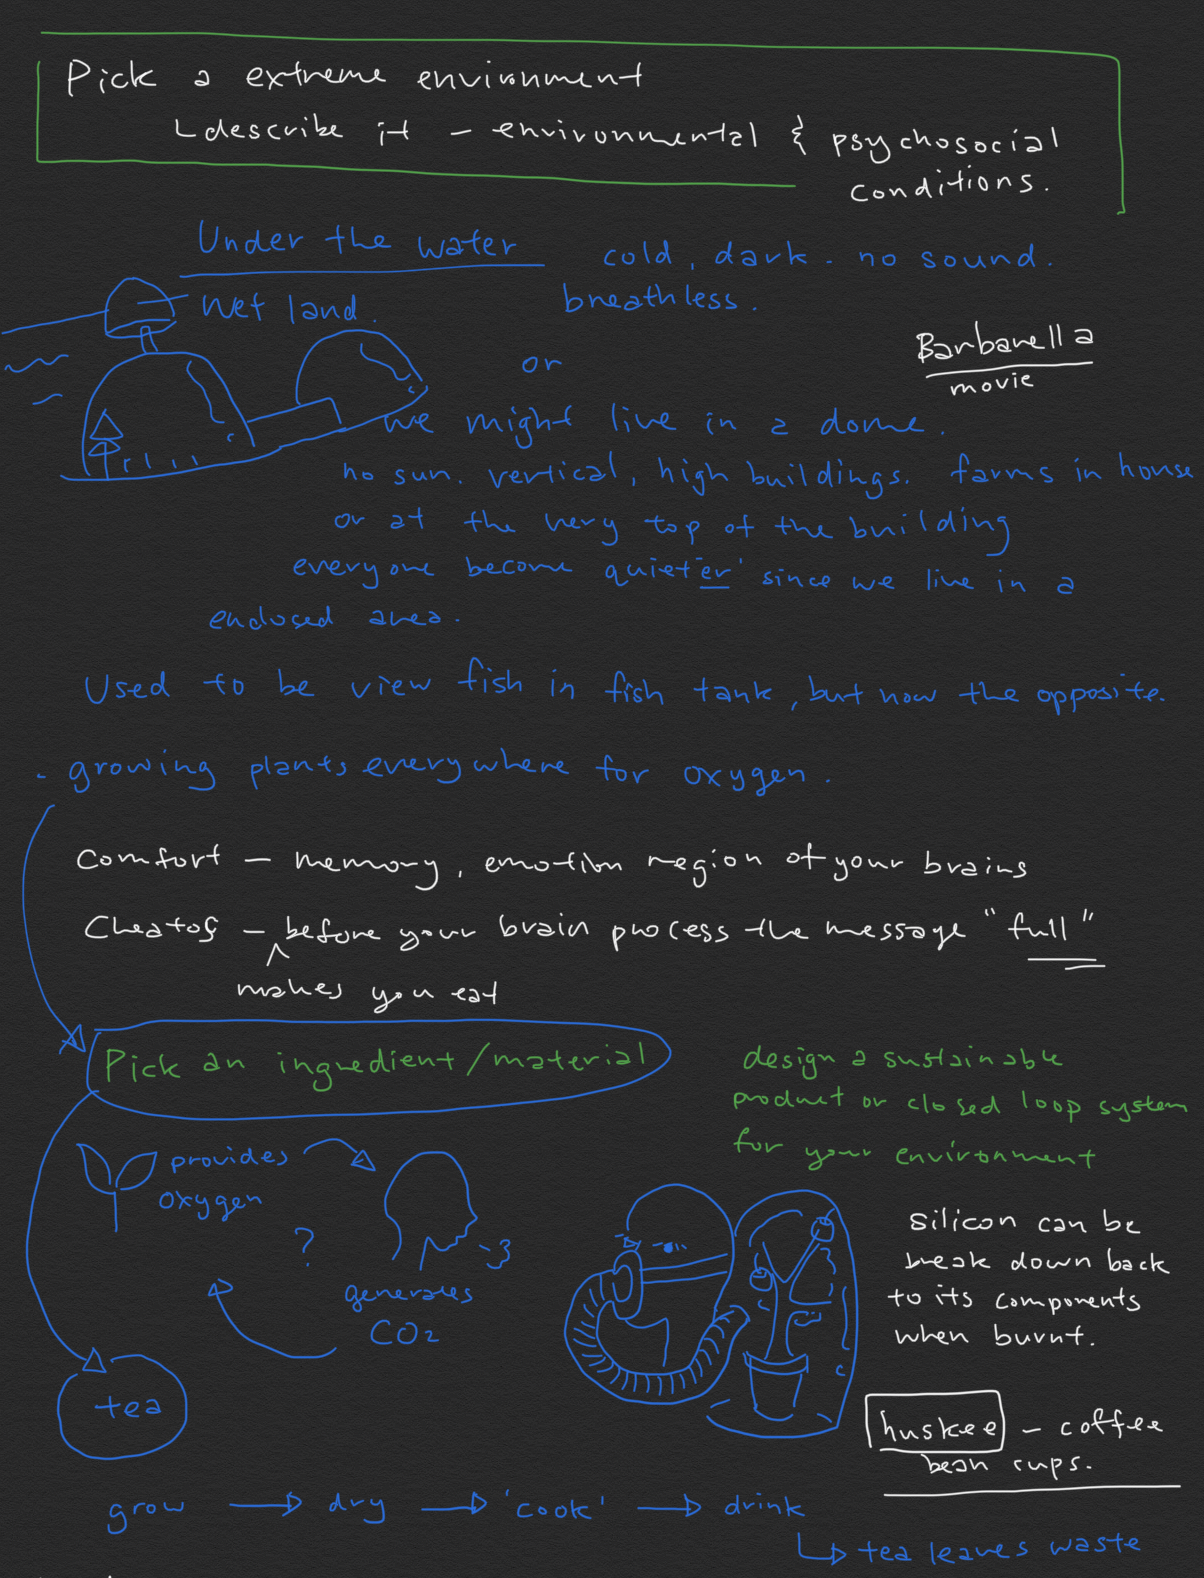 Pick a extreme environment
describe it - environmental & psychosocial
conditions.
Under the water
cold, dark. no sound.
breathless.
Wet land.
Barbarella
movie
or
we might live in a dome.
no sun. vertical, high buildings. farms in house
or at the very top of the building
everyone become quieter since we live in a
enclosed area.
Used to be view fish in fish tank, but now the opposite.
- growing plants everywhere for oxygen.
Comfort - memory, emotion region of your brains
Cheatos - before your brain process the message "full"
makes you eat
Pick an ingredient/material
design a sustainable
product or closed loop system
for your environment
provides
oxygen
?
generates
CO2
silicon can be
break down back
to its components
when burnt.
tea
huskee - coffee
bean cups.
grow → dry → 'cook' → drink
tea leaves waste